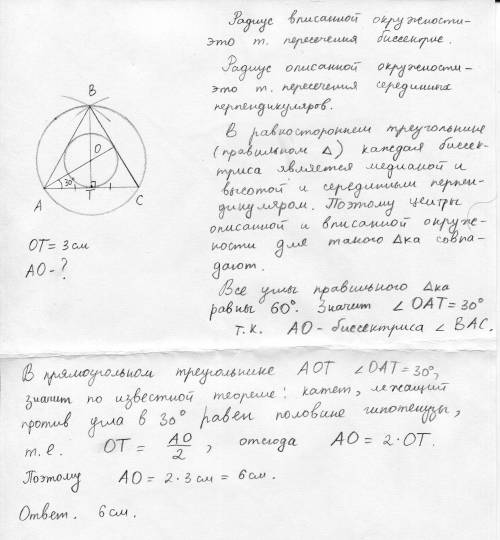 Радиус вписанной окружности-
это т. пересечения биссектрис.
Радиус описанной окружности-
это т. пересечения серединных
перпендикуляров.
В равностороннем треугольнике
(правильном Δ) каждая биссек-
триса является медианой и
высотой и серединным перпен-
дикуляром. Поэтому центры
описанной и вписанной окруж-
ности для такого Δка совпа-
дают.
Все углы правильного Δка
равны 60°. Значит ∠OAT=30°
т.к. AO-биссектриса ∠BAC.
B
O
30°
A
T
C
OT=3см
AO-?
В прямоугольном треугольнике AOT ∠OAT=30°,
значит по известной теореме: катет, лежащий
против угла в 30° равен половине гипотенузы,
т.е. OT = AO/2, отсюда AO=2·OT.
Поэтому AO=2·3см=6см.
Ответ. 6см.